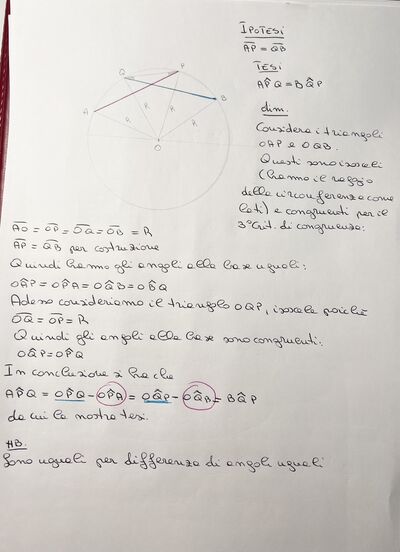 IPOTESI
AP = QB
TESI
AP̂Q = BQ̂P
dim.
Q
P
A
B
R
R
R
R
O
Considera i triangoli
OAP e OQB.
Questi sono isosceli
(hanno il raggio
della circonferenza come
lati) e congruenti per il
3°Crit. di congruenza:
AO = OP = OQ = OB = R
AP = QB per costruzione
Quindi hanno gli angoli alla base uguali:
OÂP = OP̂A = OQ̂B = OB̂Q
Adesso consideriamo il triangolo OQP, isoscele poiché
OQ = OP = R
Quindi gli angoli alla base sono congruenti:
OQ̂P = OP̂Q
In conclusione si ha che
AP̂Q = OP̂Q - OP̂A = OQ̂P - OQ̂B = BQ̂P
da cui la nostra tesi.
NB.
Sono uguali per differenza di angoli uguali